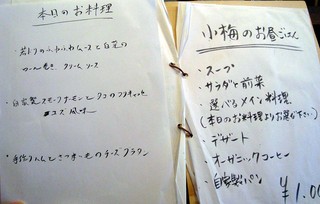 本日のお料理
・若トリのふんわりムースと白菜の
クリームソース
・自家製スモークサーモンと
風味
・手作り とさつまいものチーズグラタン
小梅のお昼ごはん
・スープ
・サラダと前菜
・選べるメイン料理
(本日のお料理よりお選び下さい)
・デザート
・オーガニックコーヒー
・自家製パン
¥1.00